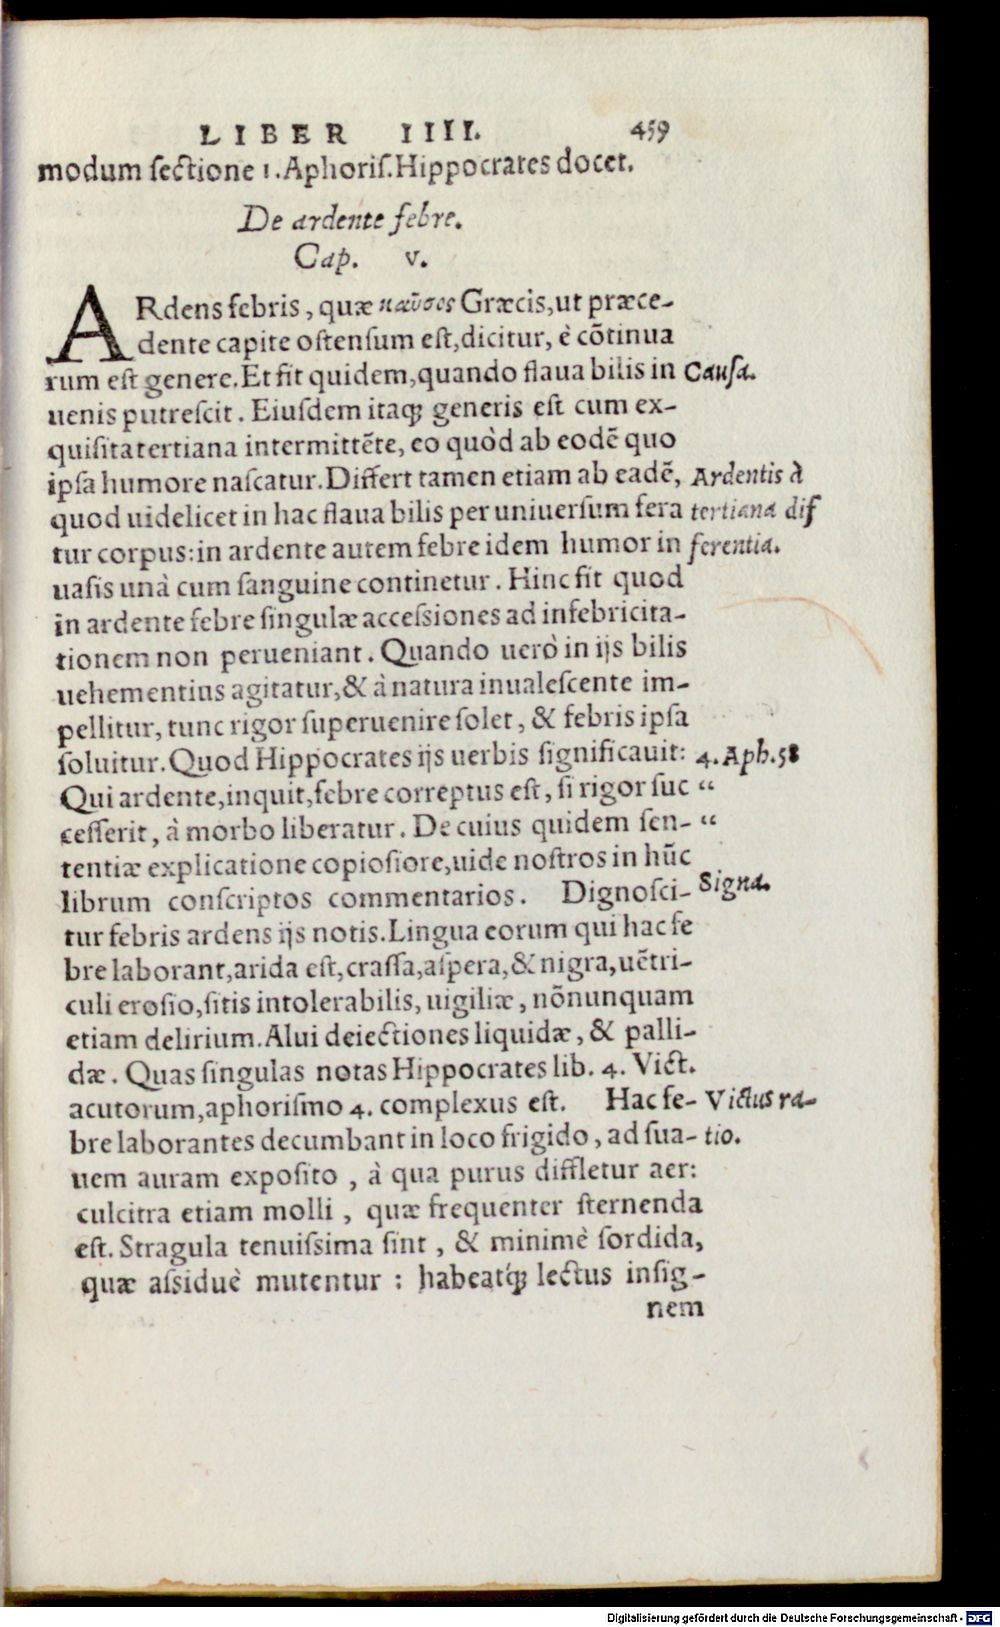 LIBER IIII. 459
modum sectione 1. Aphoris. Hippocrates docet.
De ardente febre.
Cap. v.
ARdens febris, quæ καῦσος Græcis, ut præce-
dente capite ostensum est, dicitur, è cõtinua
rum est genere. Et fit quidem, quando flaua bilis in Causa.
uenis putrescit. Eiusdem itaq; generis est cum ex-
quisita tertiana intermittẽte, eo quòd ab eodẽ quo
ipsa humore nascatur. Differt tamen etiam ab eadẽ, Ardentis à
quod uidelicet in hac flaua bilis per uniuersum fera tertiana dif
tur corpus: in ardente autem febre idem humor in ferentia.
uasis unà cum sanguine continetur. Hinc fit quod
in ardente febre singulæ accessiones ad infebricita-
tionem non perueniant. Quando uerò in ijs bilis
uehementius agitatur, & à natura inualescente im-
pellitur, tunc rigor superuenire solet, & febris ipsa
soluitur. Quod Hippocrates ijs uerbis significauit: 4. Aph. 58
Qui ardente, inquit, febre correptus est, si rigor suc “
cesserit, à morbo liberatur. De cuius quidem sen- “
tentiæ explicatione copiosiore, uide nostros in hũc
librum conscriptos commentarios. Dignosci- Signa.
tur febris ardens ijs notis. Lingua eorum qui hac fe
bre laborant, arida est, crassa, aspera, & nigra, uẽtri-
culi erosio, sitis intolerabilis, uigiliæ, nõnunquam
etiam delirium. Alui deiectiones liquidæ, & palli-
dæ. Quas singulas notas Hippocrates lib. 4. Vict.
acutorum, aphorismo 4. complexus est. Hac fe- Victus ra-
bre laborantes decumbant in loco frigido, ad sua- tio.
uem auram exposito, à qua purus diffletur aer:
culcitra etiam molli, quæ frequenter sternenda
est. Stragula tenuissima sint, & minimè sordida,
quæ assiduè mutentur: habeatq́; lectus insig-
nem
Digitalisierung gefördert durch die Deutsche Forschungsgemeinschaft - DFG